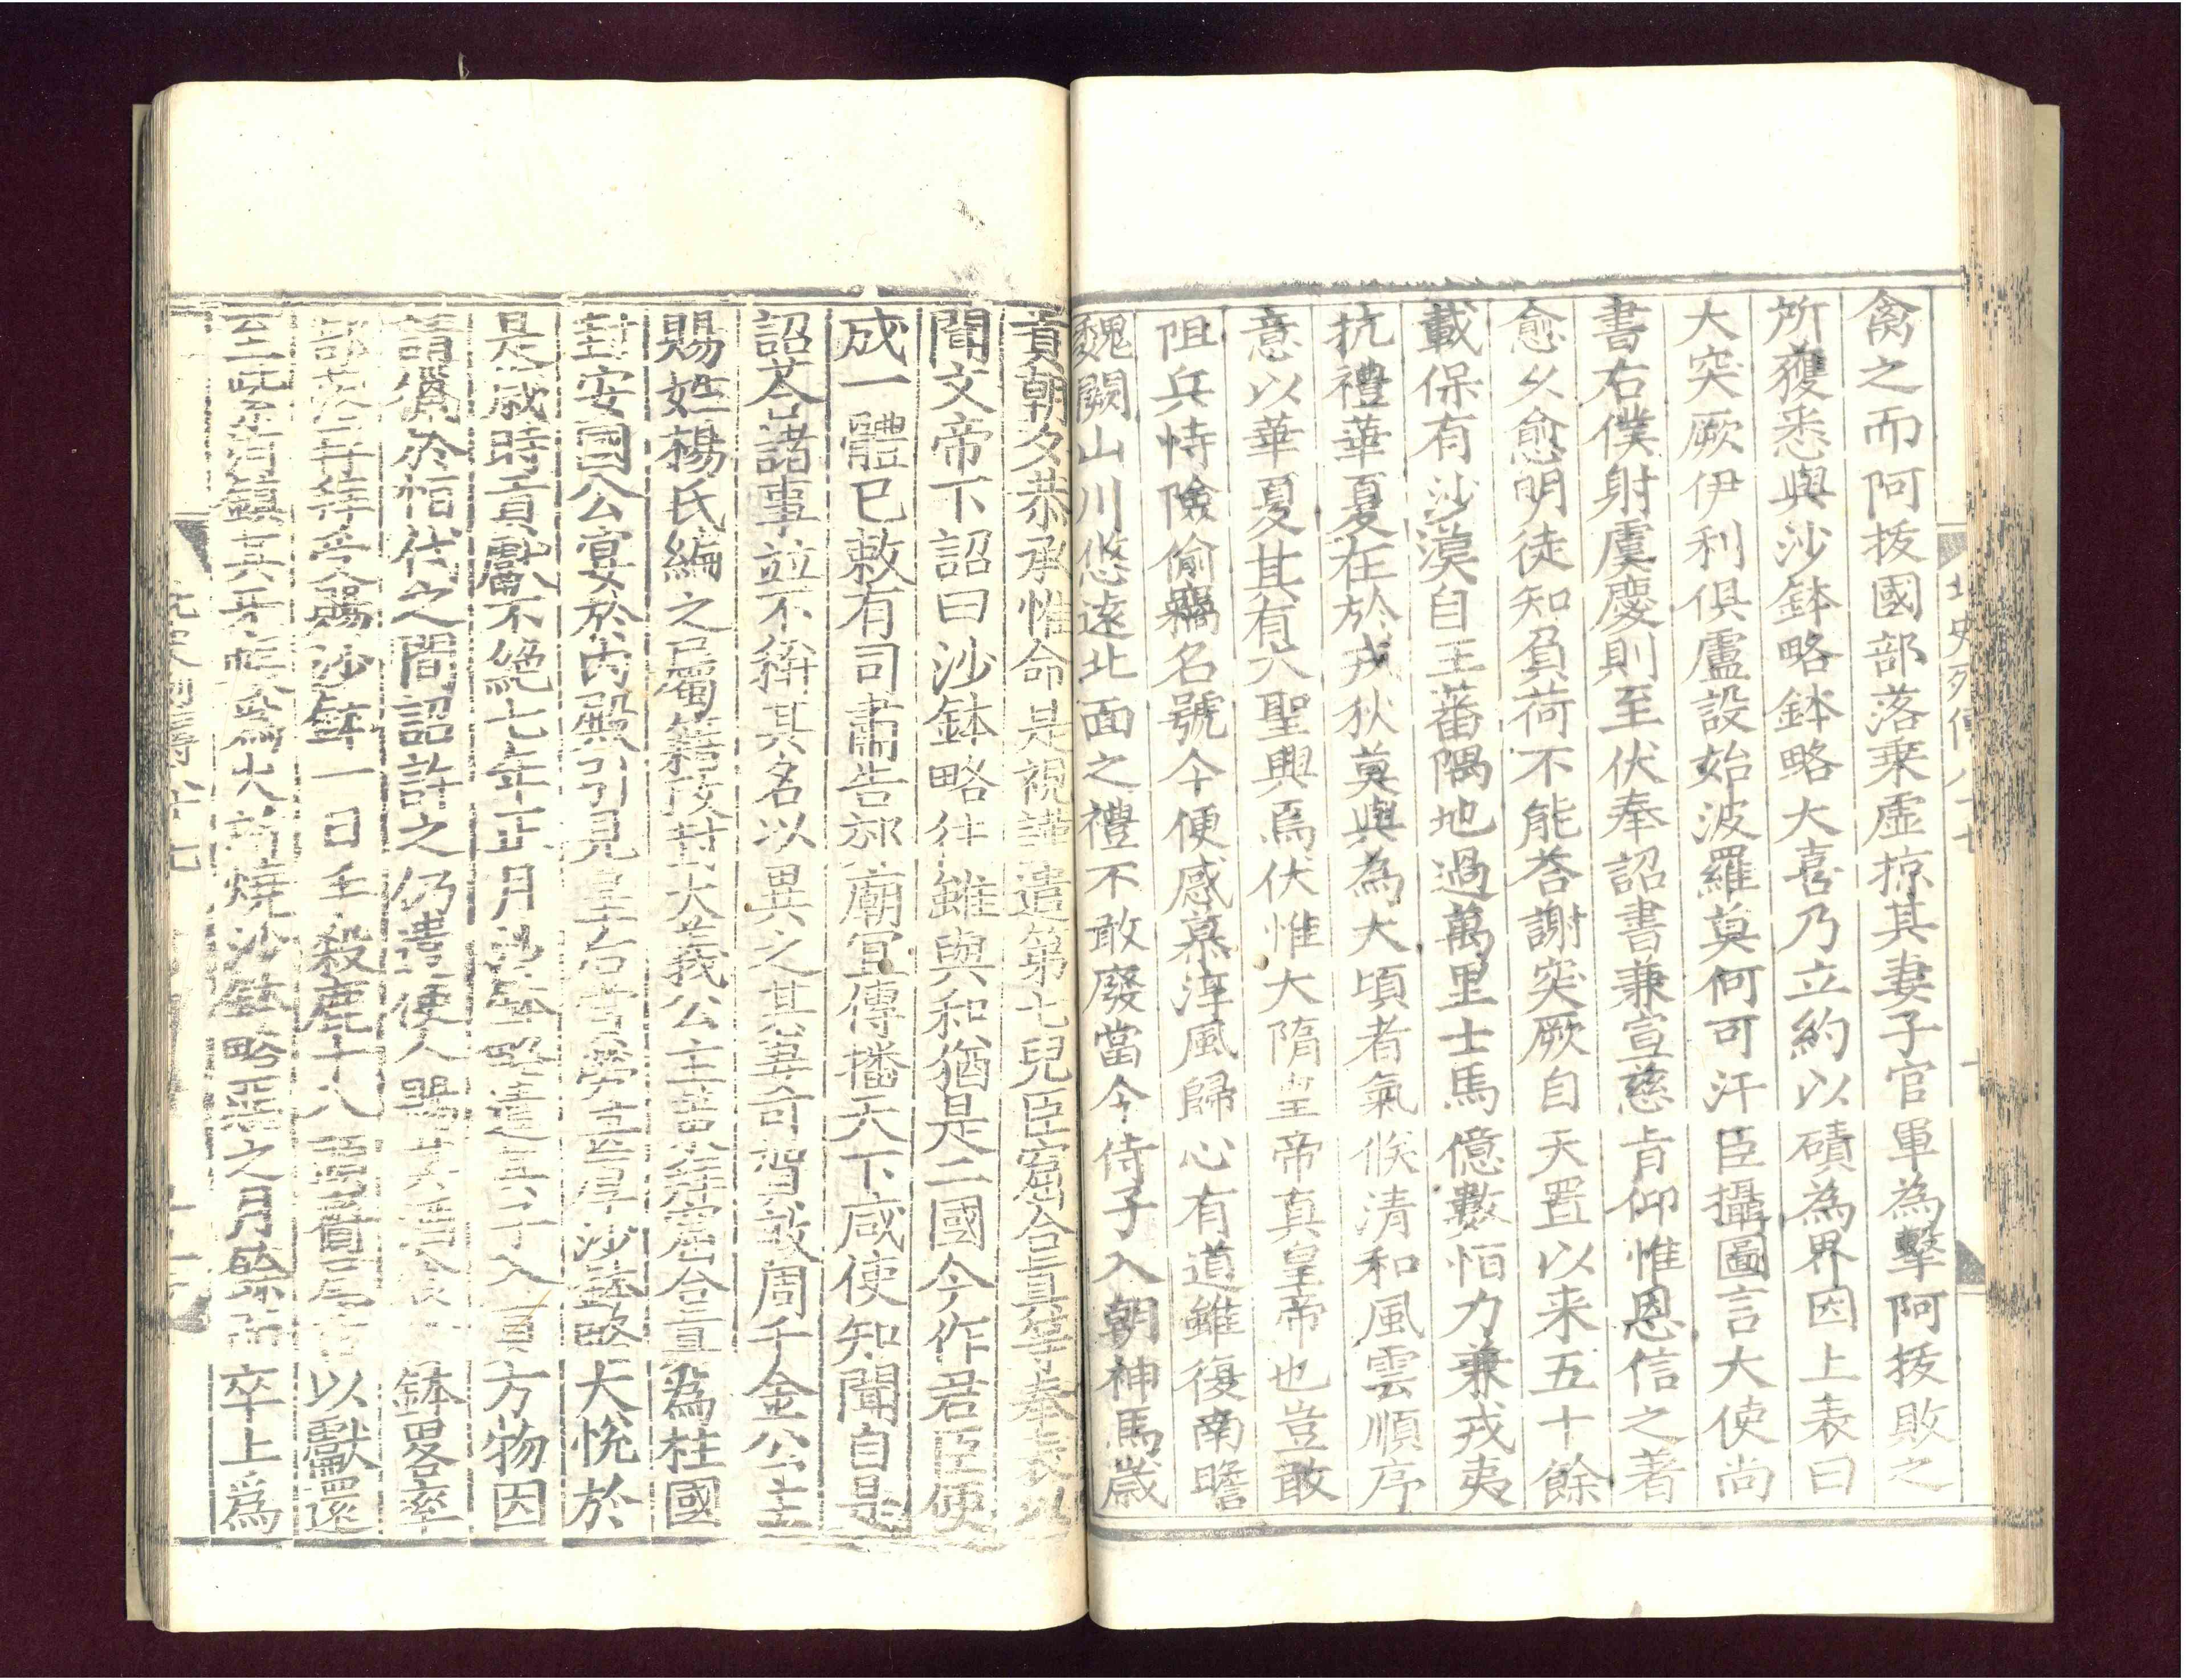 禽之而阿拔國部落乗虛掠其妻子官軍為擊阿拔敗之
所獲悉與沙鉢略鉢略大喜乃立約以磧為界因上表曰
大突厥伊利俱盧設始波羅莫何可汗臣攝圖言大使尚
書右僕射虞慶則至伏奉詔書兼宣慈旨仰惟恩信之著
愈久愈明徒知負荷不能荅謝突厥自天置以来五十餘
載保有沙漠自王蕃隅地過萬里士馬億數恒力兼戎夷
抗禮華夏在於戎狄莫與為大頃者氣候清和風雲順序
意以華夏其有大聖興焉伏惟大隋皇帝真皇帝也豈敢
阻兵恃險偷竊名號今便感慕淳風歸心有道雖復南瞻
魏闕山川悠遠北面之禮不敢廢當今侍子入朝神馬歲
貢朝夕恭承惟命是視謹遣第七兒臣窟合真等奉表以
聞文帝下詔曰沙鉢略往雖與和猶是二國今作君臣便
成一體已敕有司肅告郊廟宜傳播天下咸使知聞自是
詔荅諸事並不稱其名以異之其妻可賀敦周千金公主
賜姓楊氏編之屬籍改封大義公主䇿拜窟合真為柱國
封安國公宴於內殿引見皇后賞勞甚厚沙鉢略大悅於
是歲時貢獻不絕七年正月沙鉢略遣其子入貢方物因
請獵於恒代之間詔許之仍遣使人賜其酒食鉢畧率
部落再拜受賜沙鉢一日手殺鹿十八以獻還
至紫河鎮其牙帳為火所燒沙鉢略惡之月餘而卒上爲
北史列傳八十七